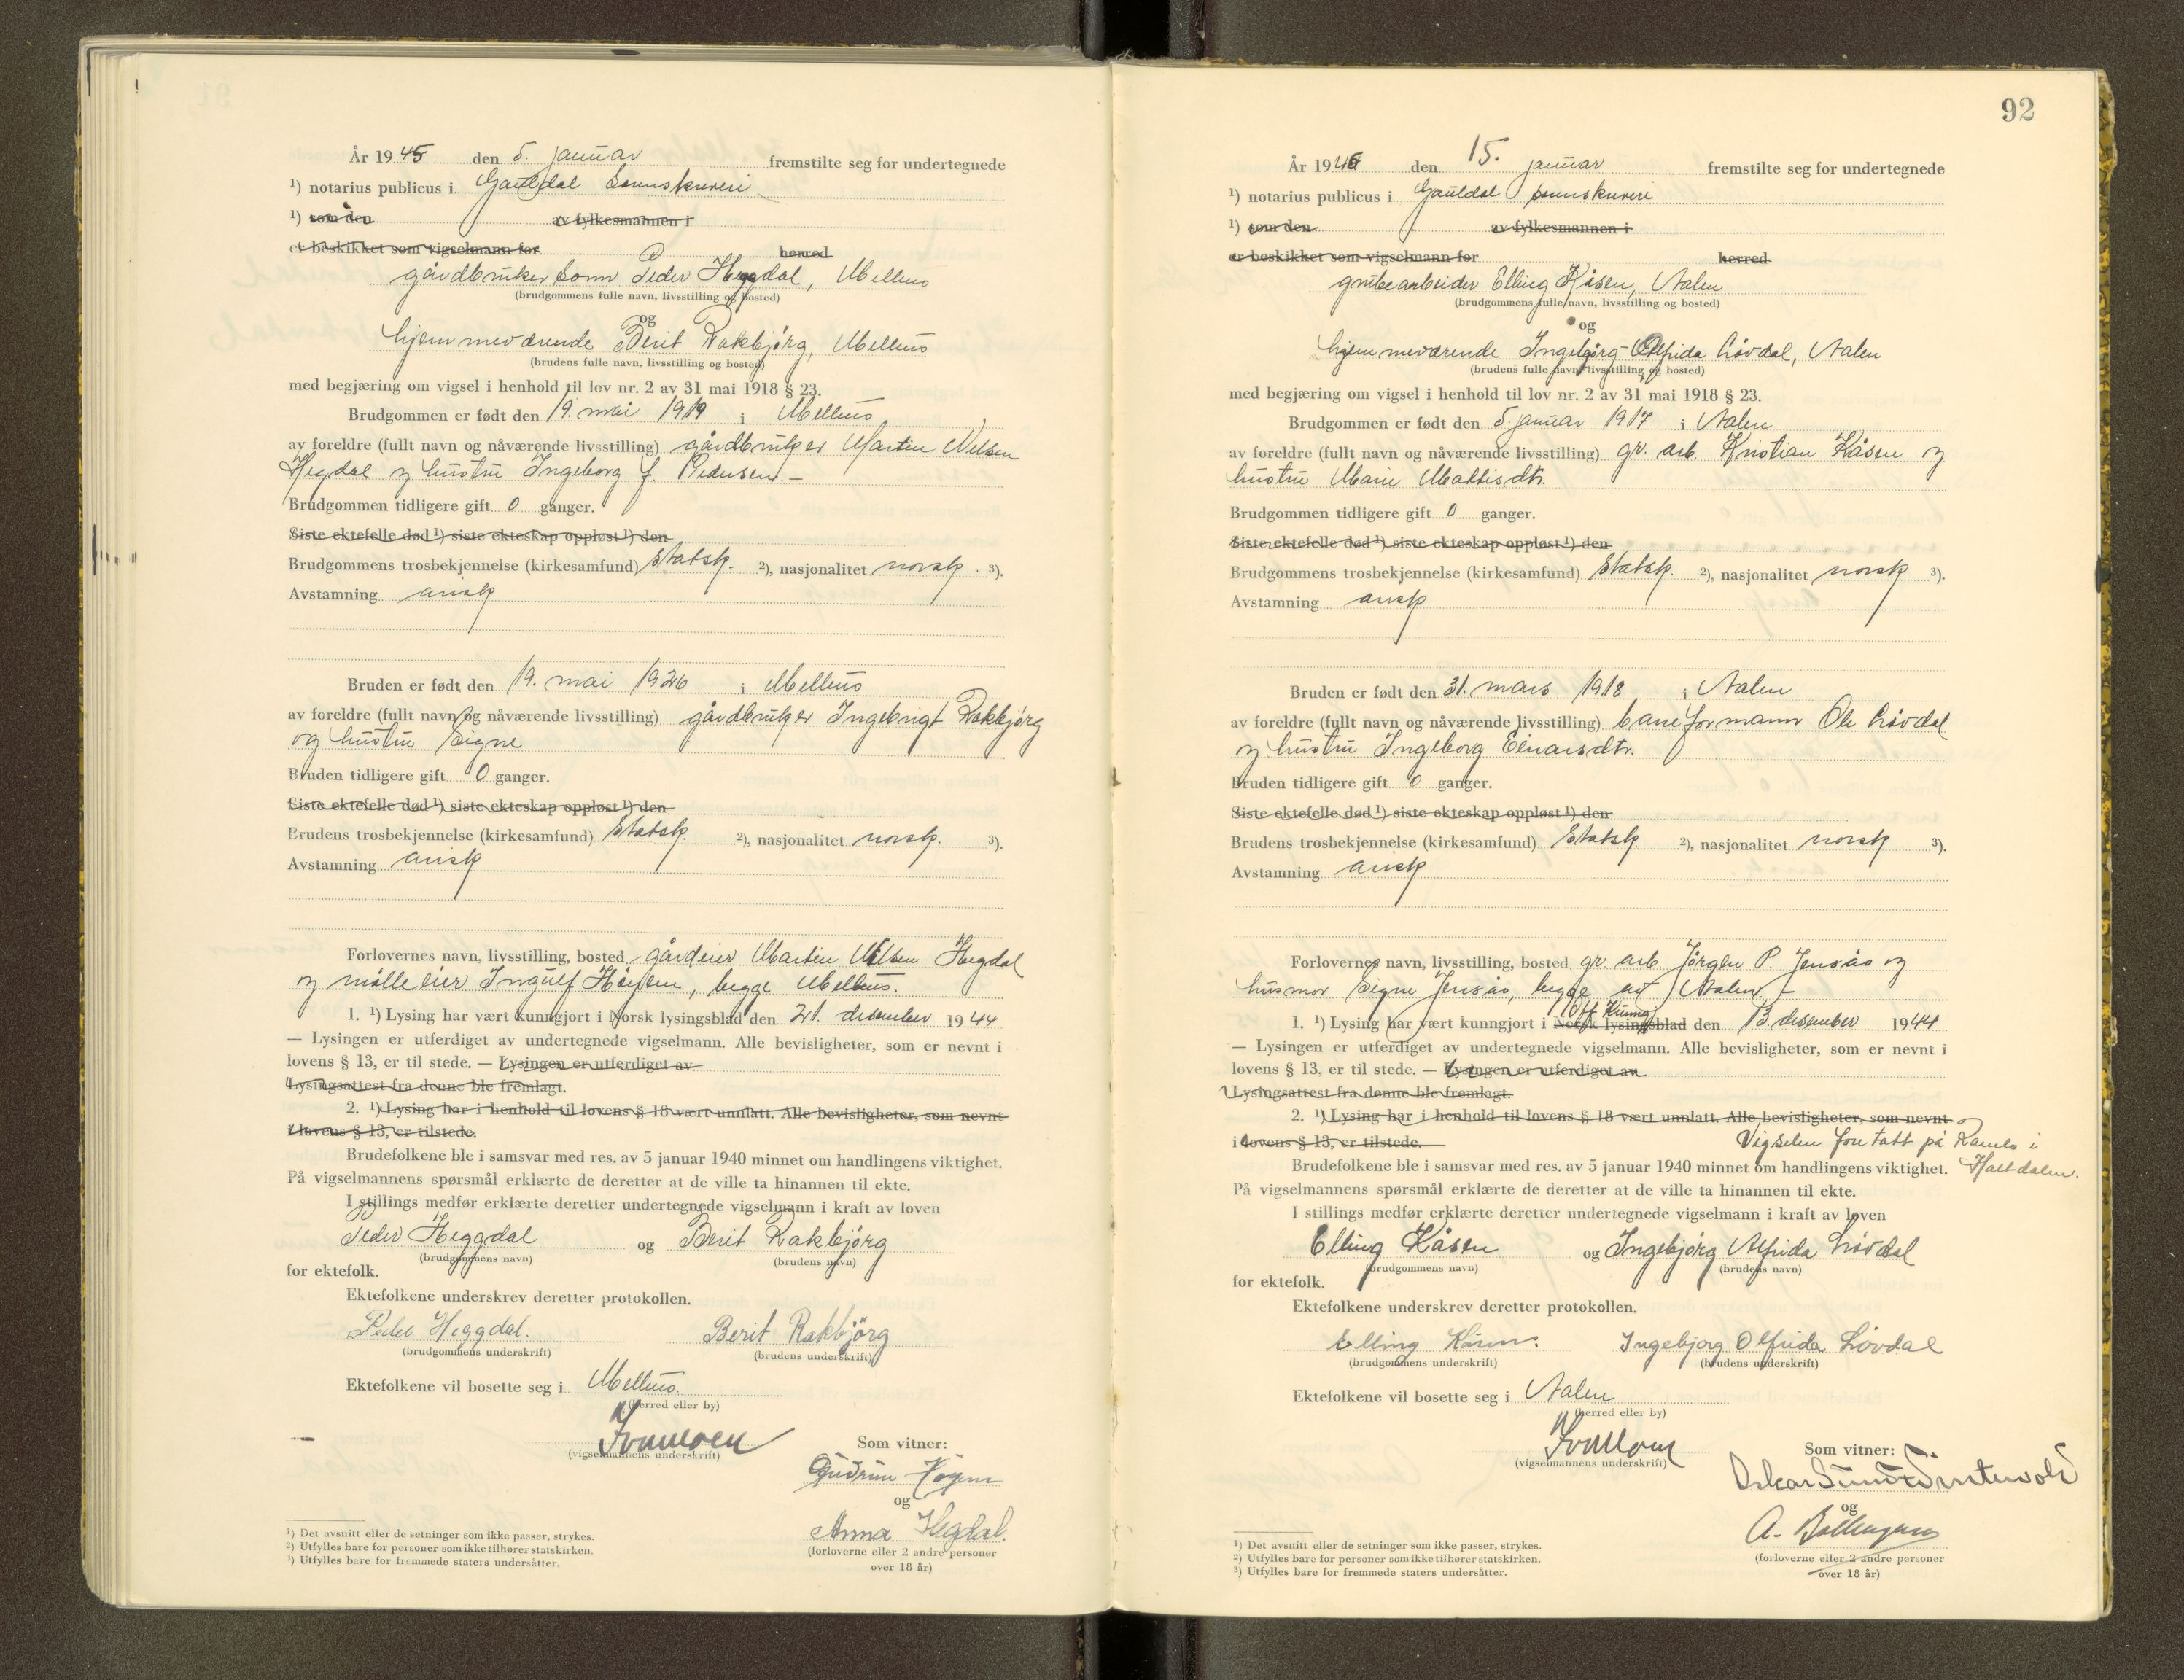 År 1945 den 5. januar fremstilte seg for undertegnede
¹) notarius publicus i Gauldal sorenskriveri
¹) som den av fylkesmannen i
er beskikket som vigselmann for herred
gårdbruker sønn Peder Heggdal, Melhus
(brudgommens fulle navn, livsstilling og bosted)
og
hjemmeværende Berit Rakbjørg, Melhus
(brudens fulle navn, livsstilling og bosted)
med begjæring om vigsel i henhold til lov nr. 2 av 31 mai 1918 § 23.
Brudgommen er født den 19. mai 1919 i Melhus
av foreldre (fullt navn og nåværende livsstilling) gårdbruker Martin Nilsen
Hegdal og hustru Ingeborg f. Pedersen. -
Brudgommen tidligere gift 0 ganger.
Siste ektefelle død ¹) siste ekteskap oppløst ¹) den
Brudgommens trosbekjennelse (kirkesamfund) Statsk. ²), nasjonalitet norsk. ³).
Avstamning arisk
Bruden er født den 19. mai 1926 i Melhus
av foreldre (fullt navn og nåværende livsstilling) gårdbruker Ingebrigt Rakbjørg
og hustru Signe
Bruden tidligere gift 0 ganger.
Siste ektefelle død ¹) siste ekteskap oppløst ¹) den
Brudens trosbekjennelse (kirkesamfund) Statsk ²), nasjonalitet norsk. ³).
Avstamning arisk
Forlovernes navn, livsstilling, bosted gårdeier Martin Nilsen Hegdal
og mølleeier Ingulf Høyem, begge Melhus.
1. ¹) Lysing har vært kunngjort i Norsk lysingsblad den 21. desember 1944
— Lysingen er utferdiget av undertegnede vigselmann. Alle bevisligheter, som er nevnt i
lovens § 13, er til stede. — Lysingen er utferdiget av
Lysingsattest fra denne ble fremlagt.
2. ¹) Lysing har i henhold til lovens § 18 vært unnlatt. Alle bevisligheter, som nevnt
i lovens § 13, er tilstede.
Brudefolkene ble i samsvar med res. av 5 januar 1940 minnet om handlingens viktighet.
På vigselmannens spørsmål erklærte de deretter at de ville ta hinannen til ekte.
I stillings medfør erklærte deretter undertegnede vigselmann i kraft av loven
Peder Heggdal og Berit Rakbjørg
(brudgommens navn) (brudens navn)
for ektefolk.
Ektefolkene underskrev deretter protokollen.
Peder Heggdal. Berit Rakbjörg
(brudgommens underskrift) (brudens underskrift)
Ektefolkene vil bosette seg i Melhus.
(herred eller by)
(vigselmannens underskrift) Som vitner:
Gudrun Høyem
og
Anna Hegdal.
(forloverne eller 2 andre personer
over 18 år)
¹) Det avsnitt eller de setninger som ikke passer, strykes.
²) Utfylles bare for personer som ikke tilhører statskirken.
³) Utfylles bare for fremmede staters undersåtter.
92
År 1945 den 15. januar fremstilte seg for undertegnede
¹) notarius publicus i Gauldal sorenskriveri
¹) som den av fylkesmannen i
er beskikket som vigselmann for herred
grubearbeider Elling Kåsen, Aalen
(brudgommens fulle navn, livsstilling og bosted)
og
hjemmeværende Ingebjørg Olfrida Løvdal, Aalen
(brudens fulle navn, livsstilling og bosted)
med begjæring om vigsel i henhold til lov nr. 2 av 31 mai 1918 § 23.
Brudgommen er født den 5. januar 1917 i Aalen
av foreldre (fullt navn og nåværende livsstilling) gr. arb. Kristian Kåsen og
hustru Marie Mattisdtr.
Brudgommen tidligere gift 0 ganger.
Siste ektefelle død ¹) siste ekteskap oppløst ¹) den
Brudgommens trosbekjennelse (kirkesamfund) Statsk. ²), nasjonalitet norsk ³).
Avstamning arisk
Bruden er født den 31. mars 1918 i Aalen
av foreldre (fullt navn og nåværende livsstilling) baneformann Ole Løvdal
og hustru Ingeborg Einarsdtr.
Bruden tidligere gift 0 ganger.
Siste ektefelle død ¹) siste ekteskap oppløst ¹) den
Brudens trosbekjennelse (kirkesamfund) Statsk ²), nasjonalitet norsk ³).
Avstamning arisk
Forlovernes navn, livsstilling, bosted gr. arb. Jørgen P. Jensås og
husmor Signe Jensås, begge av Aalen. -
Off. Kunng.
1. ¹) Lysing har vært kunngjort i Norsk lysingsblad den 13. desember 1944
— Lysingen er utferdiget av undertegnede vigselmann. Alle bevisligheter, som er nevnt i
lovens § 13, er til stede. — Lysingen er utferdiget av
Lysingsattest fra denne ble fremlagt.
2. ¹) Lysing har i henhold til lovens § 18 vært unnlatt. Alle bevisligheter, som nevnt
i lovens § 13, er tilstede. Vigselen foretatt på Ramlo i
Haltdalen.
Brudefolkene ble i samsvar med res. av 5 januar 1940 minnet om handlingens viktighet.
På vigselmannens spørsmål erklærte de deretter at de ville ta hinannen til ekte.
I stillings medfør erklærte deretter undertegnede vigselmann i kraft av loven
Elling Kåsen og Ingebjørg Alfrida Løvdal
(brudgommens navn) (brudens navn)
for ektefolk.
Ektefolkene underskrev deretter protokollen.
Elling Kåsen. Ingebjorg Olfrida Løvdal
(brudgommens underskrift) (brudens underskrift)
Ektefolkene vil bosette seg i Aalen
(herred eller by)
(vigselmannens underskrift) Som vitner:
Oskar
og
A.
(forloverne eller 2 andre personer
over 18 år)
¹) Det avsnitt eller de setninger som ikke passer, strykes.
²) Utfylles bare for personer som ikke tilhører statskirken.
³) Utfylles bare for fremmede staters undersåtter.